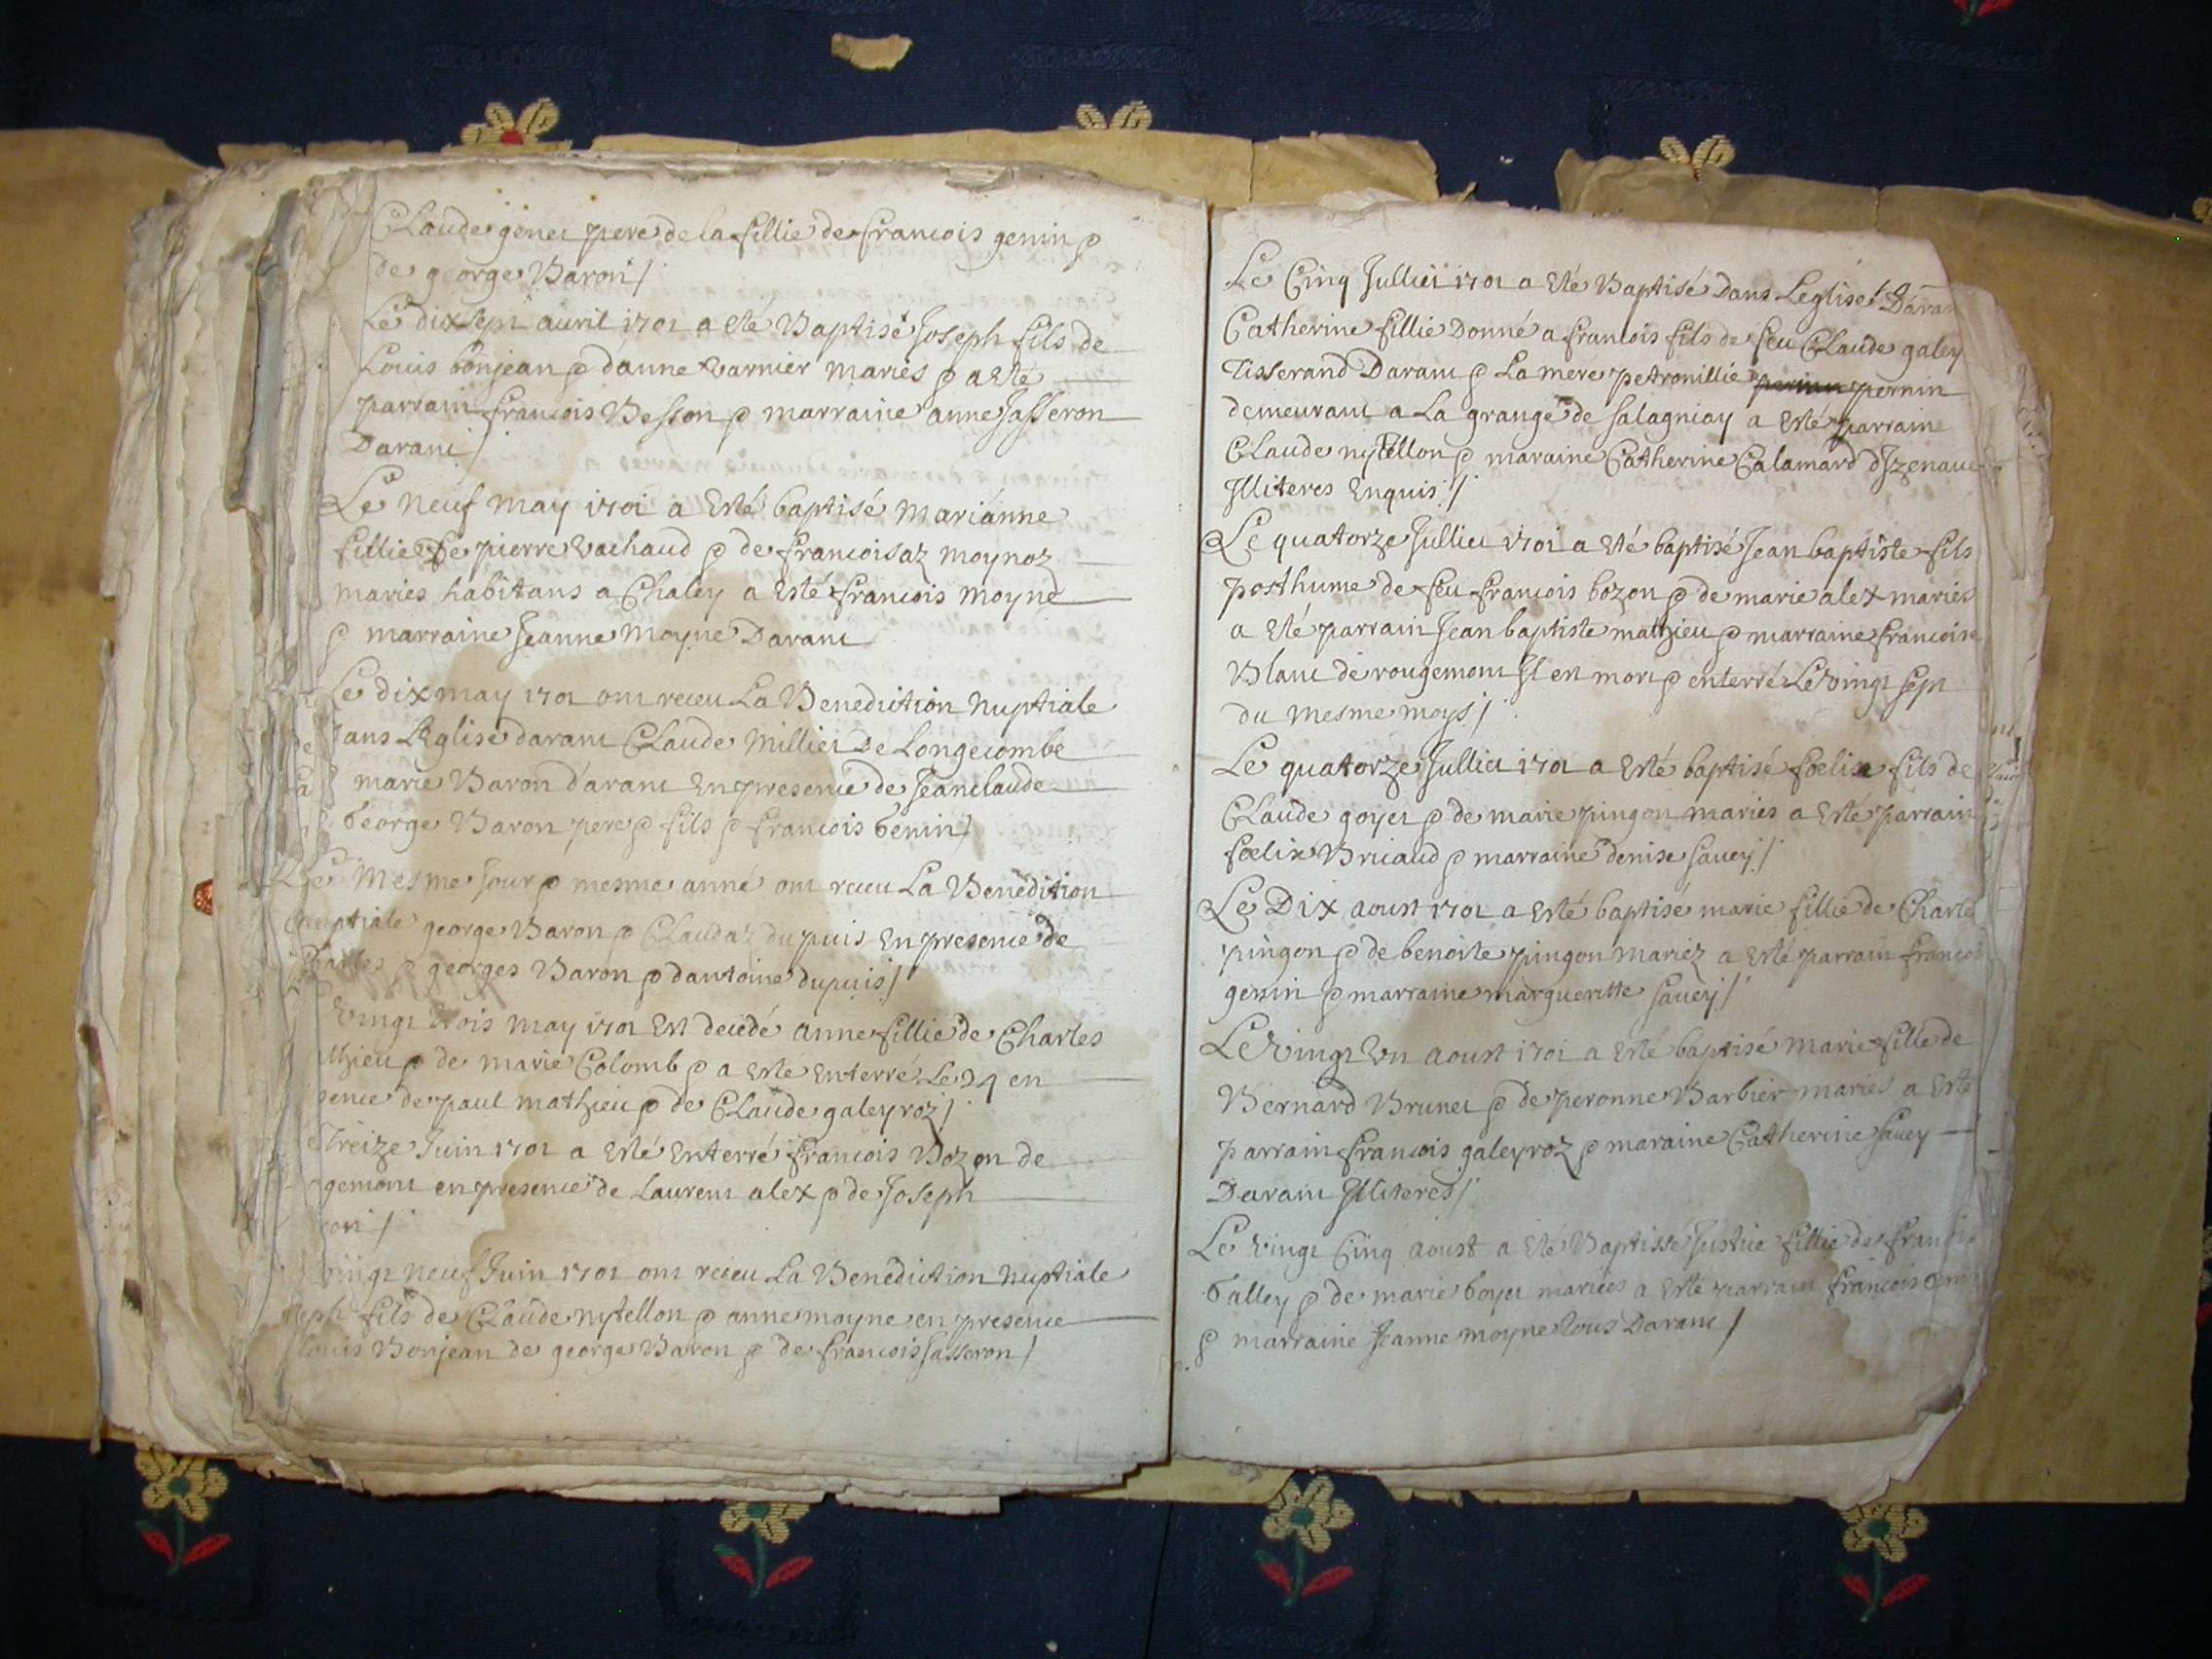 Claude goner pere de la fillie de francois genin &
de george Baron /
Le dixsept auril 1701 a Eté Baptisé Joseph fils de
Louis bonjean & d'anne varnier mariés & a Eté
parrain francois Besson & marraine anne Jasseron
Daranc /
Le neuf may 1701 a Esté baptisé marianne
fillie De pierre vachaud & de francoisaz moynoz
mariés habitans a Chaley a Esté francois moyne
& marraine Jeanne moyne Daranc
Le dix may 1701 ont receu La Benediction Nuptiale
Dans LEglise daranc Claude Milliet De Longecombe
marie Baron daranc En presence de Jeanclaude
George Baron pere & fils & francois Genin /
Le Mesme Jour & mesme anné ont receu La Benedition
Nuptiale george Baron & Claudaz dupuis En presence de
Charles & georges Baron & dantoine dupuis /
vingt trois may 1701 Est decedé anne fillie de Charles
thieu & de marie Colomb & a Esté Enterré Le 24 en
sence de paul mathieu & de Claude galeyroz /
Treize Juin 1701 a Esté Enterré francois Bozon de
gemont en presence de Laurent alex & de Joseph
zon /
vingt neuf Juin 1701 ont receu La Benediction Nuptiale
seph fils de Claude nytellon & anne moyne en presence
Louis Bonjean de george Baron & de francois Jasseron /
Le Cinq Julliet 1701 a Eté Baptisé Dans Leglise Daran
Catherine fillie Donné a francois fils de feu Claude galey
Tisserand Daranc & La mere petronillie pernin
demeurant a La grange de Salagniay a Esté parrain
Claude nytellon & maraine Catherine Calamard dJzenaue
Jlliteres Enquis /
Le quatorze Julliet 1701 a Eté baptisé Jean baptiste fils
posthume de feu francois bozon & de marie alex mariés
a Eté parrain Jean baptiste mathieu & marraine francoise
Blanc de rougemont Jl est mort & enterré Le vingt sept
du mesme moys /
Le quatorze Julliet 1701 a Esté baptisé foelix fils de
Claude goyet & de marie pingon mariés a Esté parrain
foelix Briaud & marraine denise Sauey /
Le Dix aoust 1701 a Esté baptisé marie fillie de Charle
pingon & de benoite pingon mariéz a Esté parrain francoi
genin & marraine margueritte Sauey /
Le vingt Un aoust 1701 a Esté baptisé marie fille de
Bernard Brunet & de peronne Barbier mariés a Esté
parrain francois galeyroz & maraine Catherine Sauey
Daranc Jlliteres /
Le vingt Cinq aoust a Eté Baptissé Justie fillie de francois
Galley & de marie boyet mariées a Esté parrain francois
& marraine Jeanne moyne tous Daranc /